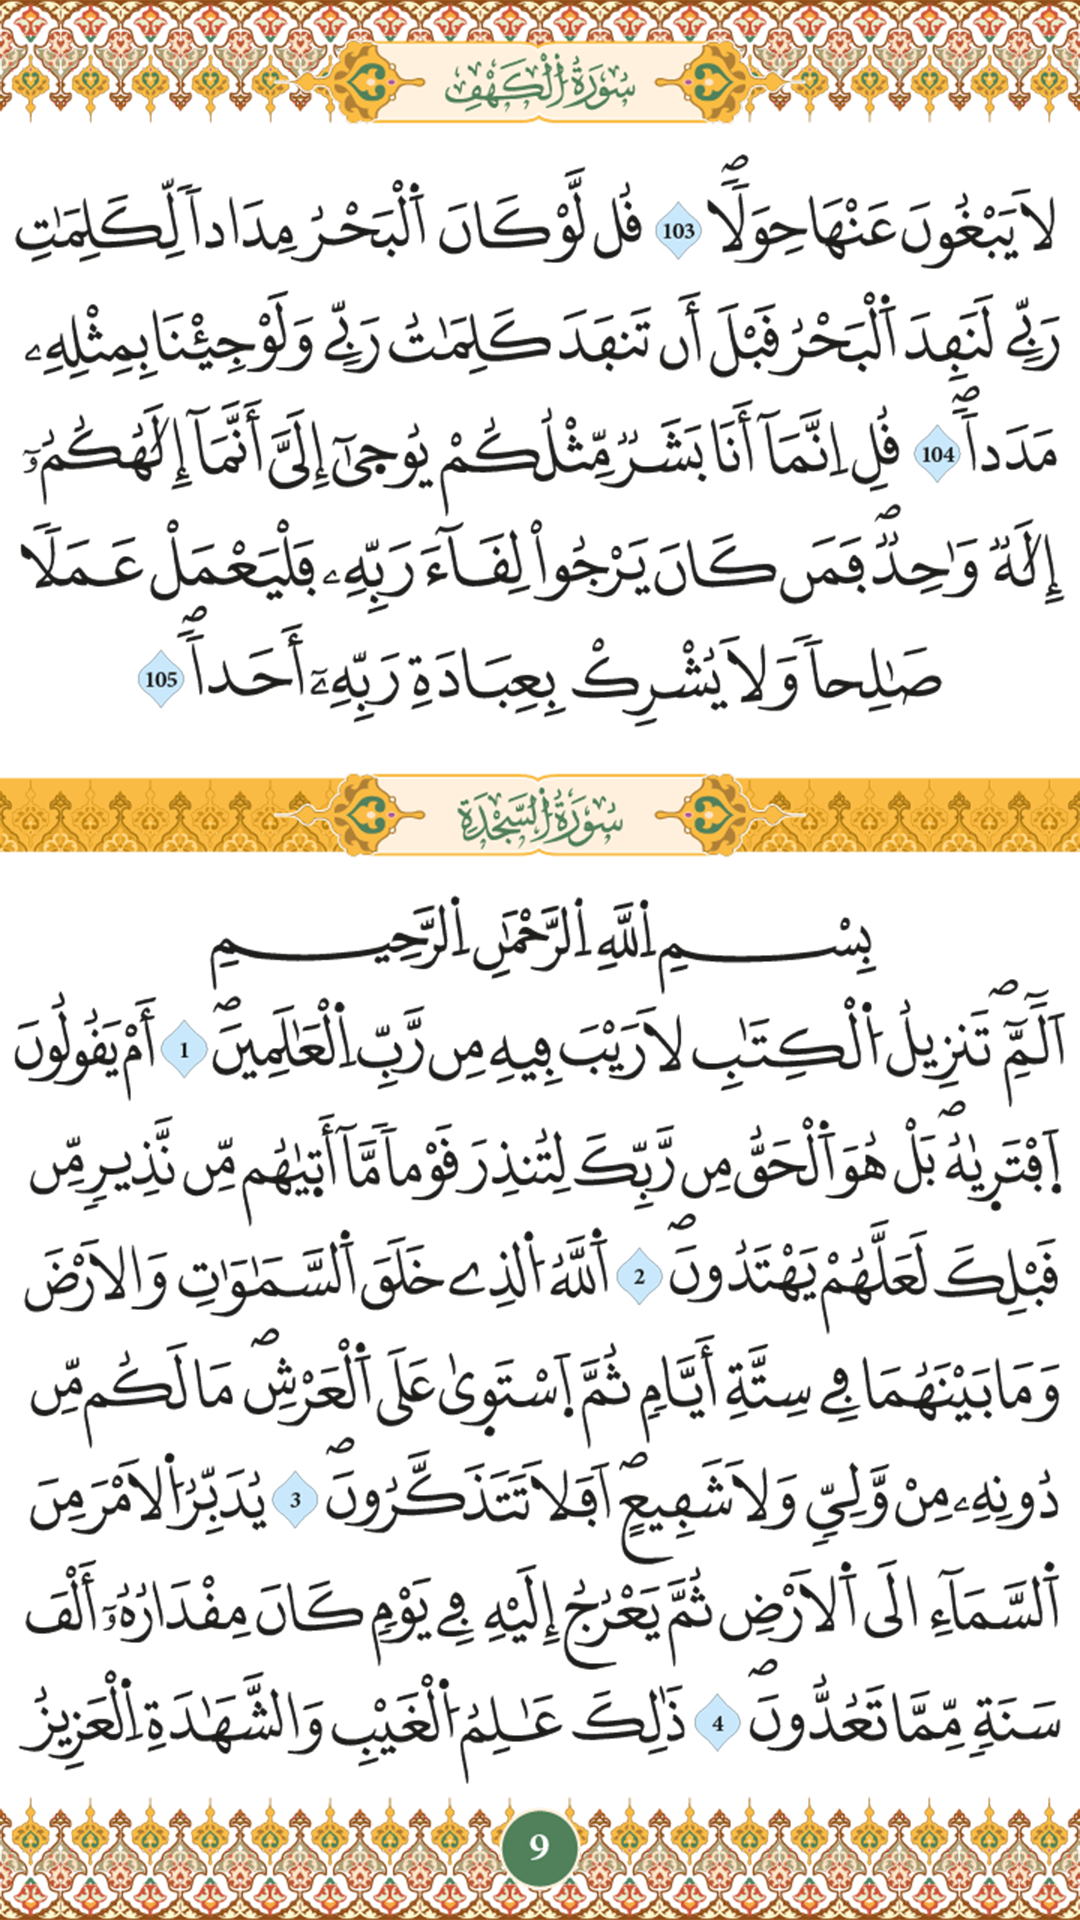 سُورَةُ اُ۬لْكَهْفِ
لَا يَبْغُونَ عَنْهَا حِوَلاٗۖ 103 قُل لَّوْ كَانَ اَ۬لْبَحْرُ مِدَاداٗ لِّكَلِمَٰتِ
رَبِّے لَنَفِدَ اَ۬لْبَحْرُ قَبْلَ أَن تَنفَدَ كَلِمَٰتُ رَبِّے وَلَوْ جِئْنَا بِمِثْلِهِۦ
مَدَداٗۖ 104 قُلِ اِنَّمَآ أَنَا بَشَرٞ مِّثْلُكُمْ يُوحَىٰٓ إِلَىَّ أَنَّمَآ إِلَٰهُكُمُۥٓ
إِلَٰهٞ وَٰحِدٞۖ فَمَن كَانَ يَرْجُواْ لِقَآءَ رَبِّهِۦ فَلْيَعْمَلْ عَمَلاٗ
صَٰلِحاٗ وَلَا يُشْرِكْ بِعِبَادَةِ رَبِّهِۦٓ أَحَداٗۖ 105
سُورَةُ اُ۬لسَّجْدَةِ
بِسْمِ اِ۬للَّهِ اِ۬لرَّحْمَٰنِ اِ۬لرَّحِيمِ
أَلَٓمِّٓۖ تَنزِيلُ اُ۬لْكِتَٰبِ لَا رَيْبَ فِيهِ مِن رَّبِّ اِ۬لْعَٰلَمِينَۖ 1 أَمْ يَقُولُونَ
اَ۪فْتَر۪يٰهُۖ بَلْ هُوَ اَ۬لْحَقُّ مِن رَّبِّكَ لِتُنذِرَ قَوْماٗ مَّآ أَت۪يٰهُم مِّن نَّذِيرٖ مِّن
قَبْلِكَ لَعَلَّهُمْ يَهْتَدُونَۖ 2 اَ۬للَّهُ اُ۬لذِے خَلَقَ اَ۬لسَّمَٰوَٰتِ وَالَارْضَ
وَمَا بَيْنَهُمَا فِے سِتَّةِ أَيَّامٖ ثُمَّ اَ۪سْتَو۪يٰ عَلَى اَ۬لْعَرْشِۖ مَا لَكُم مِّن
دُونِهِۦ مِنْ وَّلِيّٖ وَلَا شَفِيعٍۖ اَفَلَا تَتَذَكَّرُونَۖ 3 يُدَبِّرُ اُ۬لَامْرَ مِنَ
اَ۬لسَّمَآءِ الَى اَ۬لَارْضِ ثُمَّ يَعْرُجُ إِلَيْهِ فِے يَوْمٖ كَانَ مِقْدَارُهُۥٓ أَلْفَ
سَنَةٖ مِّمَّا تَعُدُّونَۖ 4 ذَٰلِكَ عَٰلِمُ اُ۬لْغَيْبِ وَالشَّهَٰدَةِ اِ۬لْعَزِيزُ
9